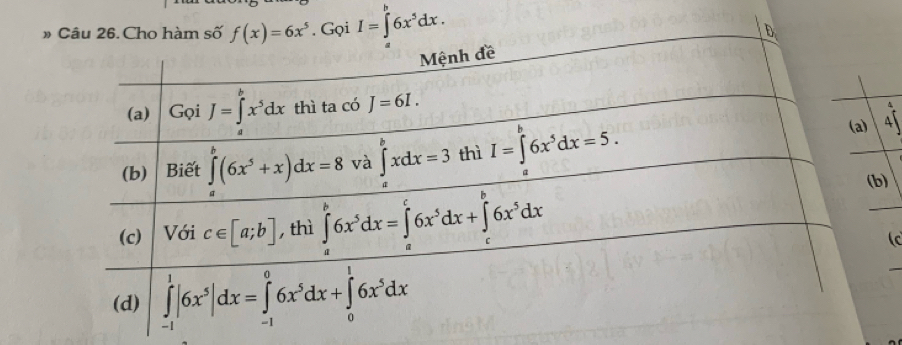 » Câu 26. Cho hàm số f(x) = 6x⁵. Gọi I = ∫ₐᵇ 6x⁵dx.
Mệnh đề
(a) Gọi J = ∫ₐᵇ x⁵dx thì ta có J = 6I.
(b) Biết ∫ₐᵇ (6x⁵ + x)dx = 8 và ∫ₐᵇ xdx = 3 thì I = ∫ₐᵇ 6x⁵dx = 5.
(c) Với c ∈ [a;b], thì ∫ₐᵇ 6x⁵dx = ∫ₐᶜ 6x⁵dx + ∫_c^b 6x⁵dx
(d) ∫₋₁¹ |6x⁵|dx = ∫₋₁⁰ 6x⁵dx + ∫₀¹ 6x⁵dx
(a) 4∫
(b)
(c